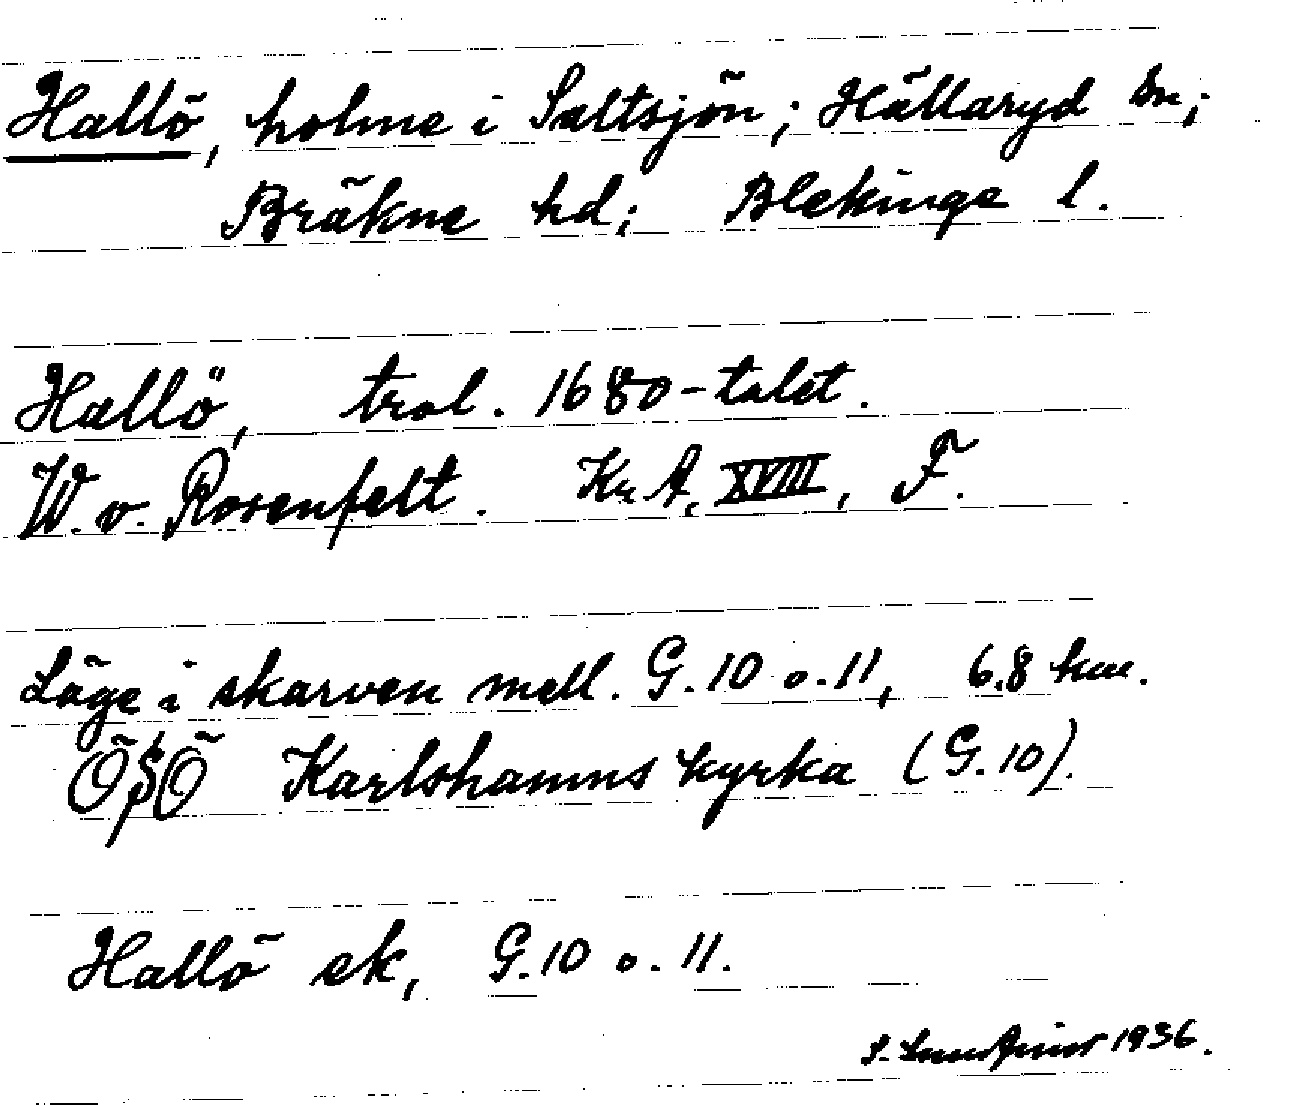 Hallö, holme i Saltsjön; Hällaryd sn;
Bräkne hd; Blekinge l.
Hallö, trol. 1680-talet.
W. v. Rosenfelt. Kr. A. XVIII, F.
Läge i skarven mell. G. 10 o. 11, 6.8 km.
ÖSÖ Karlshamns kyrka (G. 10).
Hallö ek, G. 10 o. 11.
S. 1936.